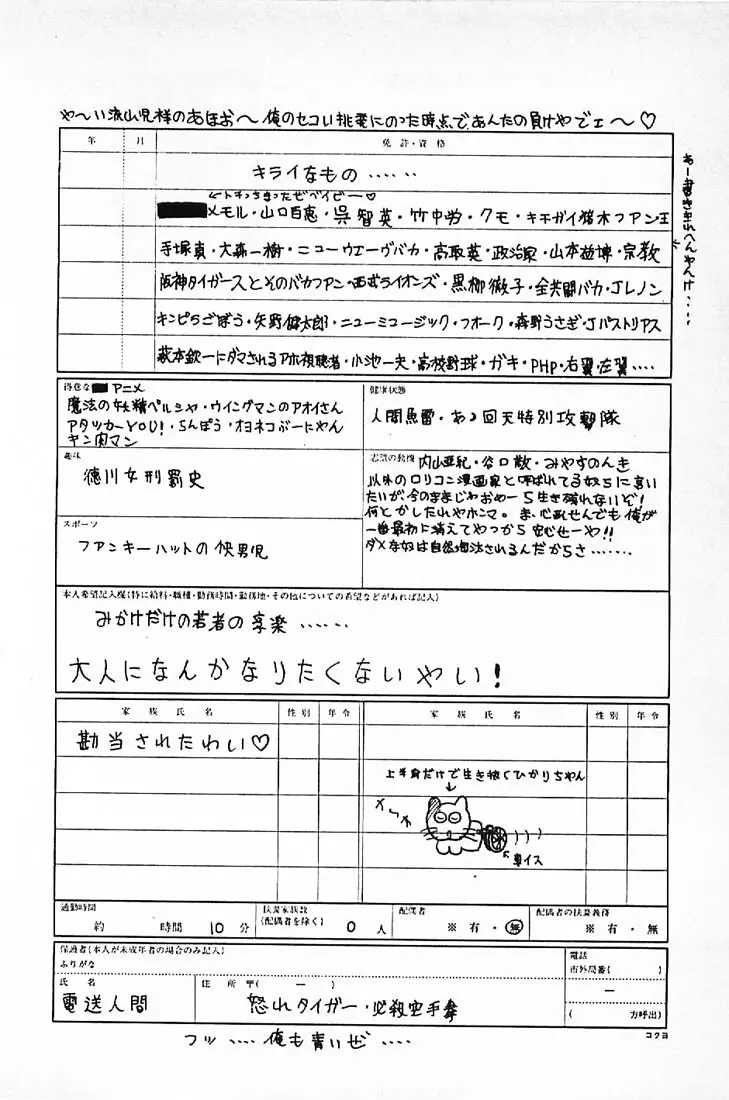 や～い流山児様のあほお～俺のセコい挑発にのった時点で、あんたの負けやでェ～♡
年 月 免許・資格
キライなもの……
メモル・山口百恵・呉智英・竹中労・クモ・キチガイ猪木ファン王
手塚真・大森一樹・ニューウェーヴバカ・高取英・政治家・山本益博・宗教
阪神タイガースとそのバカファン・西武ライオンズ・黒柳徹子・全共闘バカ・Jレノン
キンピラごぼう・矢野健太郎・ニューミュージック・フォーク・森野うさぎ・Jパストリアス
萩本欽一にダマされるアホ視聴者・小池一夫・高校野球・ガキ・PHP・右翼・左翼….
あー書ききれへんやんけ….
得意な アニメ
魔法の妖精ペルシャ・ウイングマンのアオイさん
アタッカーYOU!・らんぽう・オヨネコぶーにゃん
キン肉マン
健康状態
人間魚雷・あゝ回天特別攻撃隊
趣味
徳川女刑罰史
志望の動機 内山亜紀・谷口敬・みやすのんき
以外のロリコン漫画家と呼ばれてる奴らに言い
たいが今のままじゃおめーら生き残れないぞ!
何とかしたれやホンマ。ま、心配せんでも俺が
一番最初に消えてやっから安心せーや!!
ダメな奴は自然淘汰されるんだからさ…….
スポーツ
ファンキーハットの快男児
本人希望記入欄(特に給料・職種・勤務時間・勤務地・その他についての希望などがあれば記入)
みかけだけの若者の享楽……
大人になんかなりたくないやい!
家族氏名 性別 年令 家族氏名 性別 年令
勘当されたわい♡
上半身だけで生き抜くひかりちゃん
車イス
通勤時間
約 時間 10分
扶養家族数
(配偶者を除く) 0 人
配偶者
※有・無
配偶者の扶養義務
※有・無
保護者(本人が未成年者の場合のみ記入)
ふりがな
氏名
電送人間
住所〒( － )
怒れタイガー・必殺空手拳
電話
市外局番( )
－
( 方呼出)
フッ….俺も青いぜ….
コクヨ